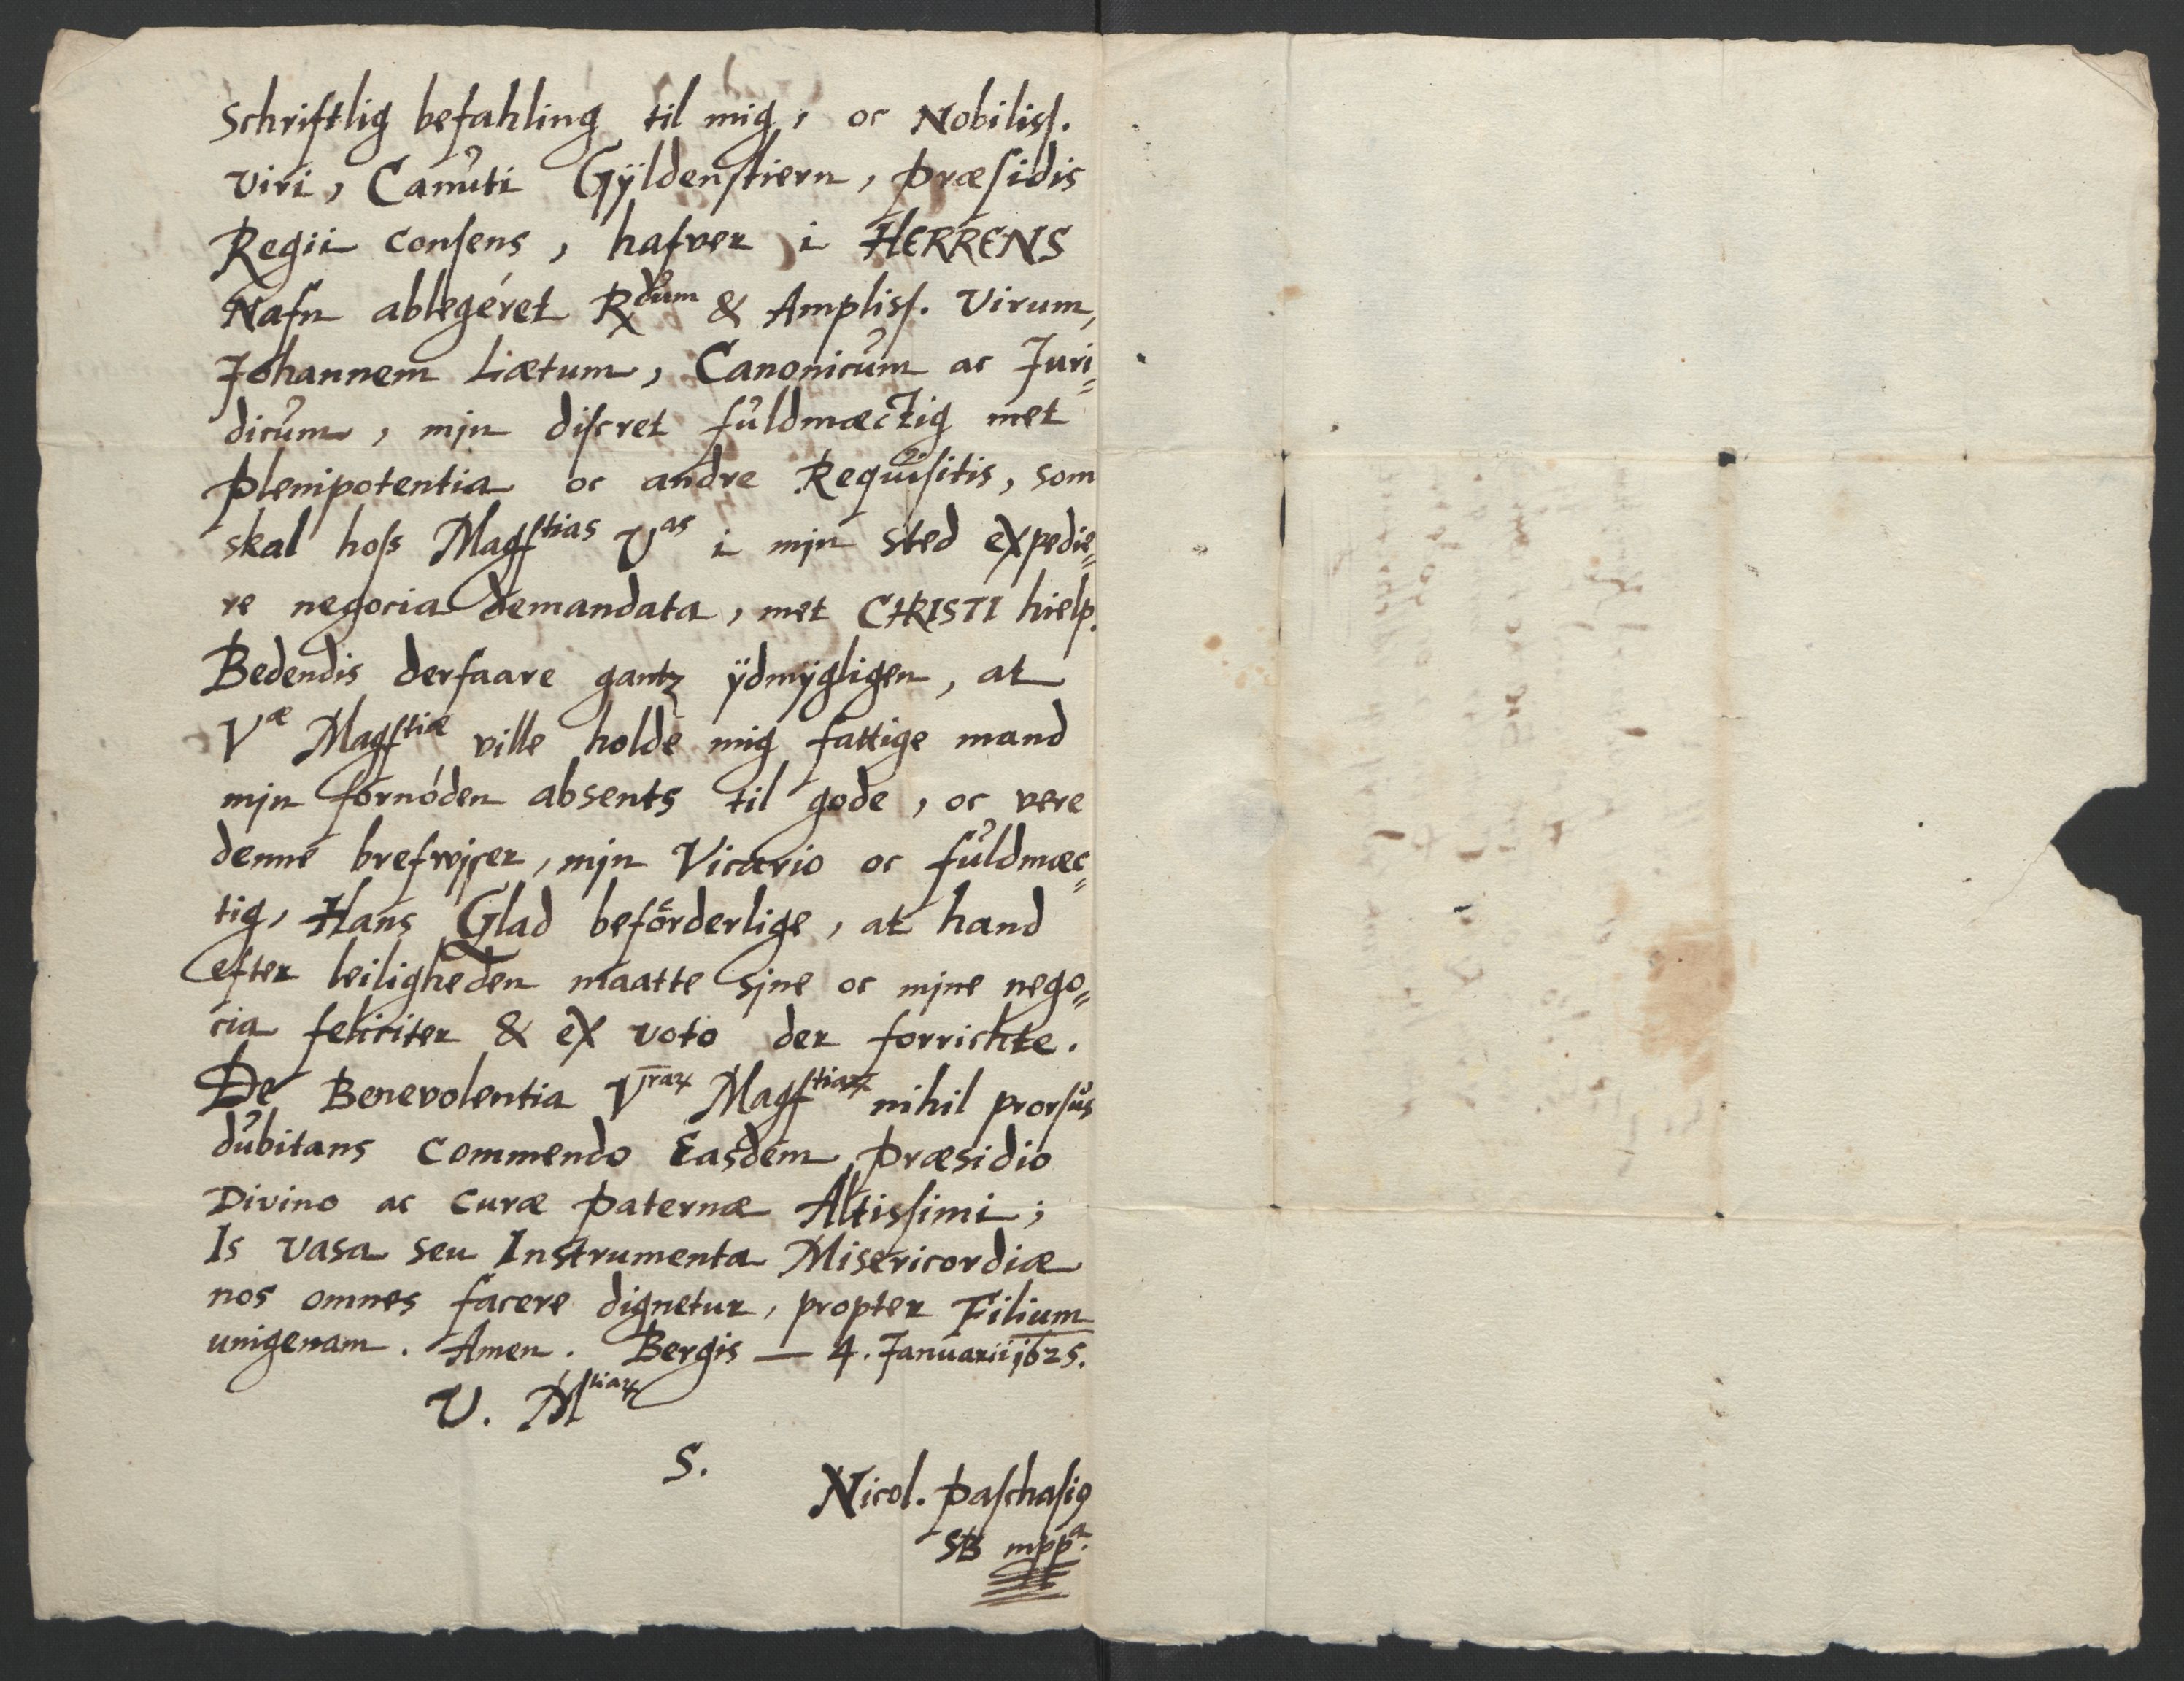 Schriftlig befahling til mig, oc Nobiliss.
viri, Canuti Gÿldenstiern, Præsidis
Regii consens, hafver i HERRENS
Nafn ablegéret Rdum & Ampliss. Virum,
Johannem Lætum, Canonicum ac Juri=
dicum, mjn discret fuldmæctig met
Plenipotentia oc andre Requisitis, som
skal hoss Magftias Vas i mjn sted expedie=
re negocia demandata, met CHRISTI hielp.
Bedendis derfaare gantz ÿdmÿgligen, at
Væ Magftiæ ville holde mig fattige mand
mjn fornóden absents til gode, oc vere
denne brefvjser, mjn Vicario oc fuldmæc=
tig, Hans Glad befórderlige, at hand
efter leiligheden maatte sjne oc mjne nego=
cia feliciter & ex voto der forrichte.
De Benevolentia Vraꝝ Magftiaꝝ nihil prorsus
dubitans commendo Easdem Præsidio
Divino ac curæ Paternæ Altissimi;
Is vasa seu Instrumenta Misericordiæ
nos omnes facere dignetur, propter Filium
unigenam. Amen. Bergis — 4. Januarii 1625.
V. Mtiaꝝ
S.
Nicol. Paschasiꝰ
SB mppa.